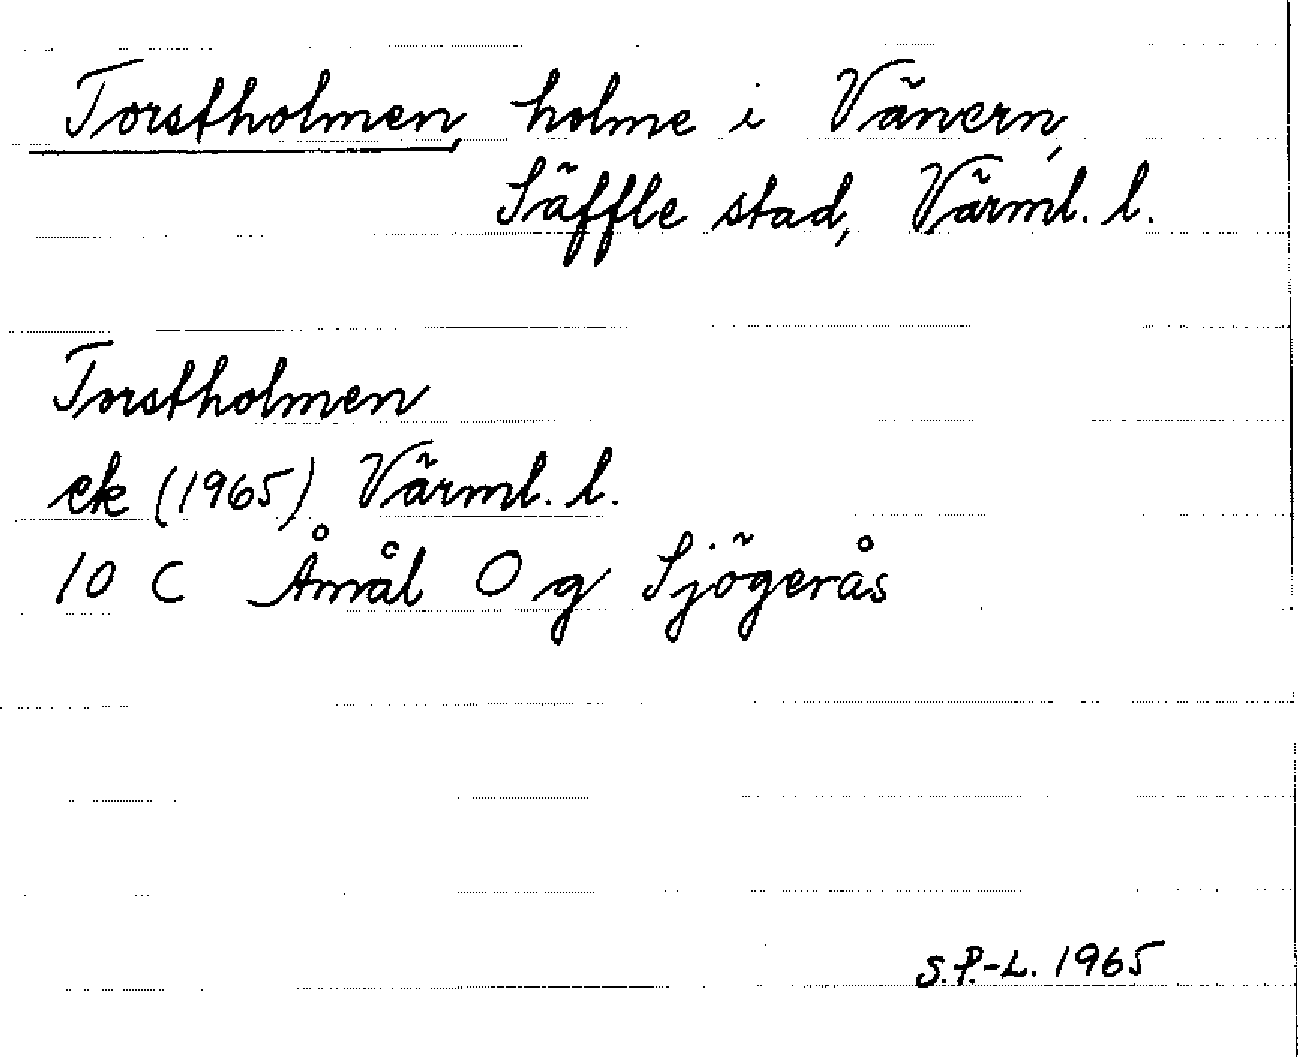 Torstholmen, holme i Vänern,
Säffle stad, Värml. l.
Torstholmen
ek (1965) Värml. l.
10 C Åmål O g Sjögerås
S.P.-L. 1965